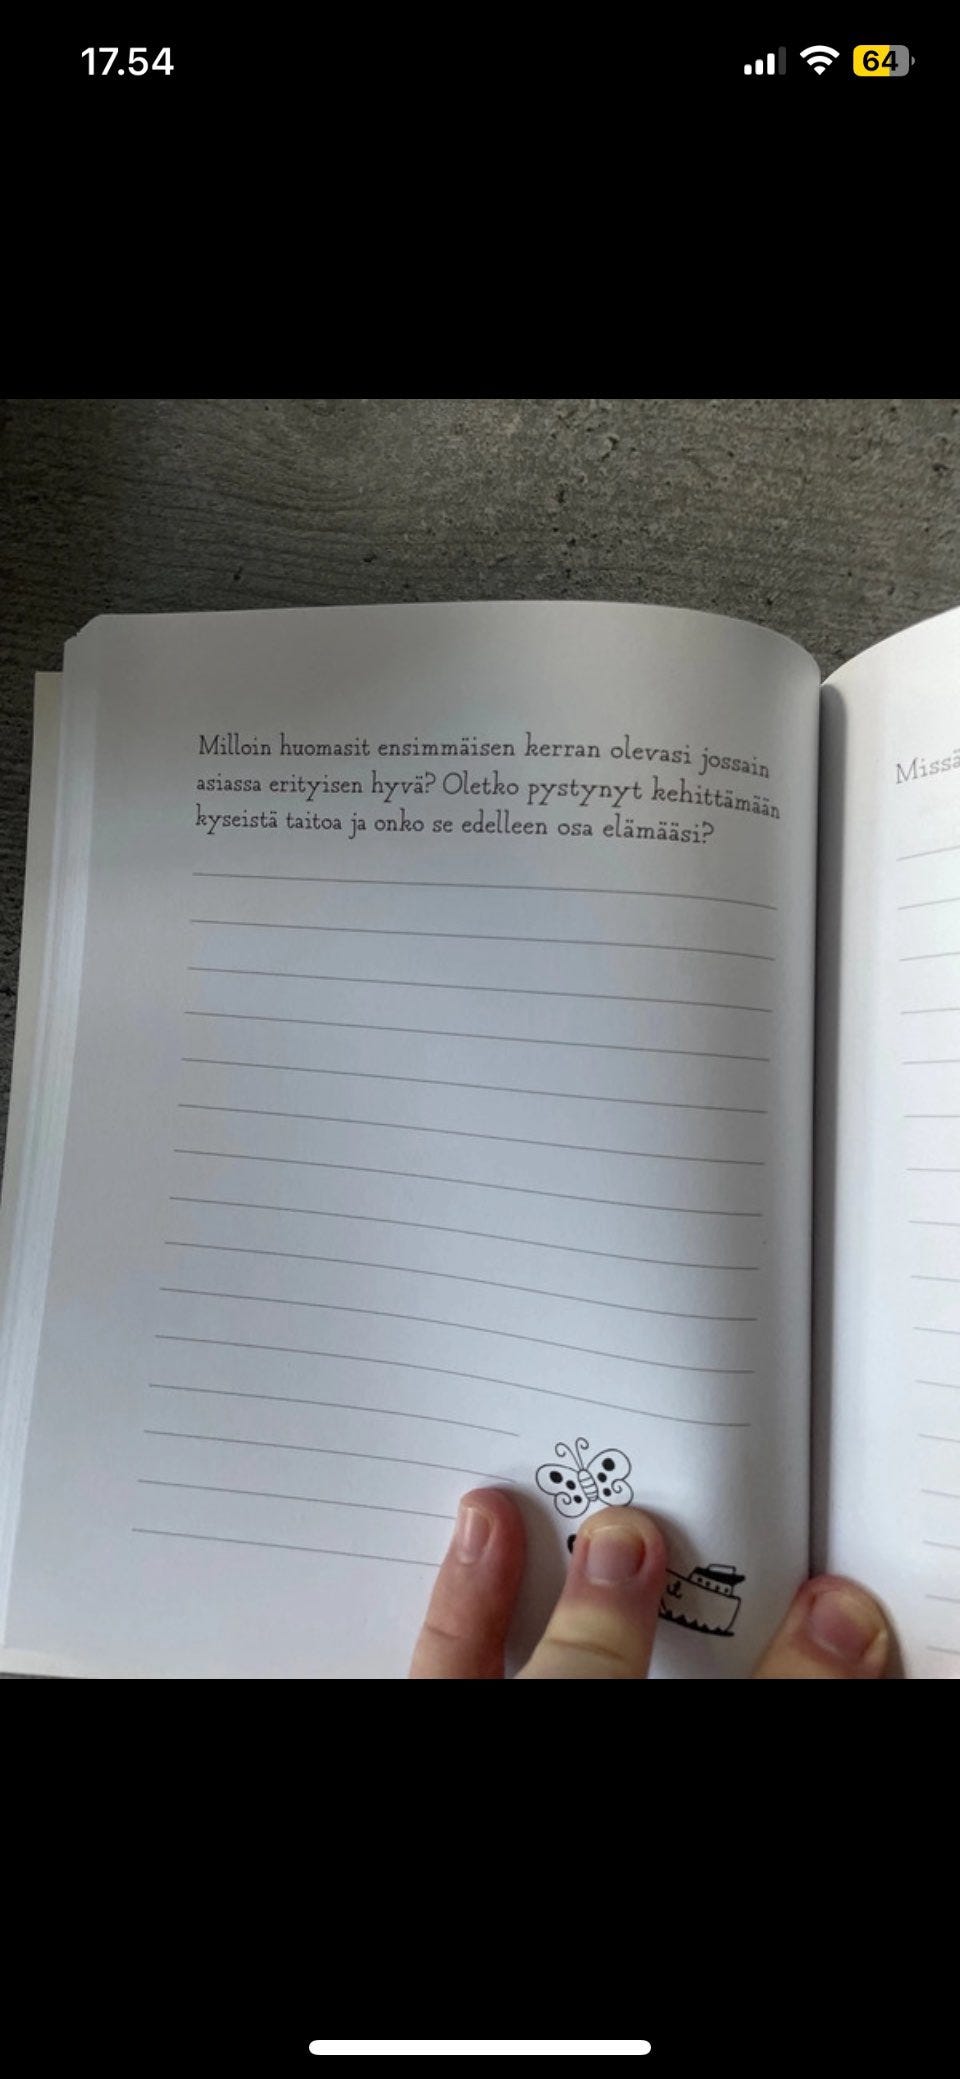 17.54
64
Milloin huomasit ensimmäisen kerran olevasi jossain
asiassa erityisen hyvä? Oletko pystynyt kehittämään
kyseistä taitoa ja onko se edelleen osa elämääsi?
Missä